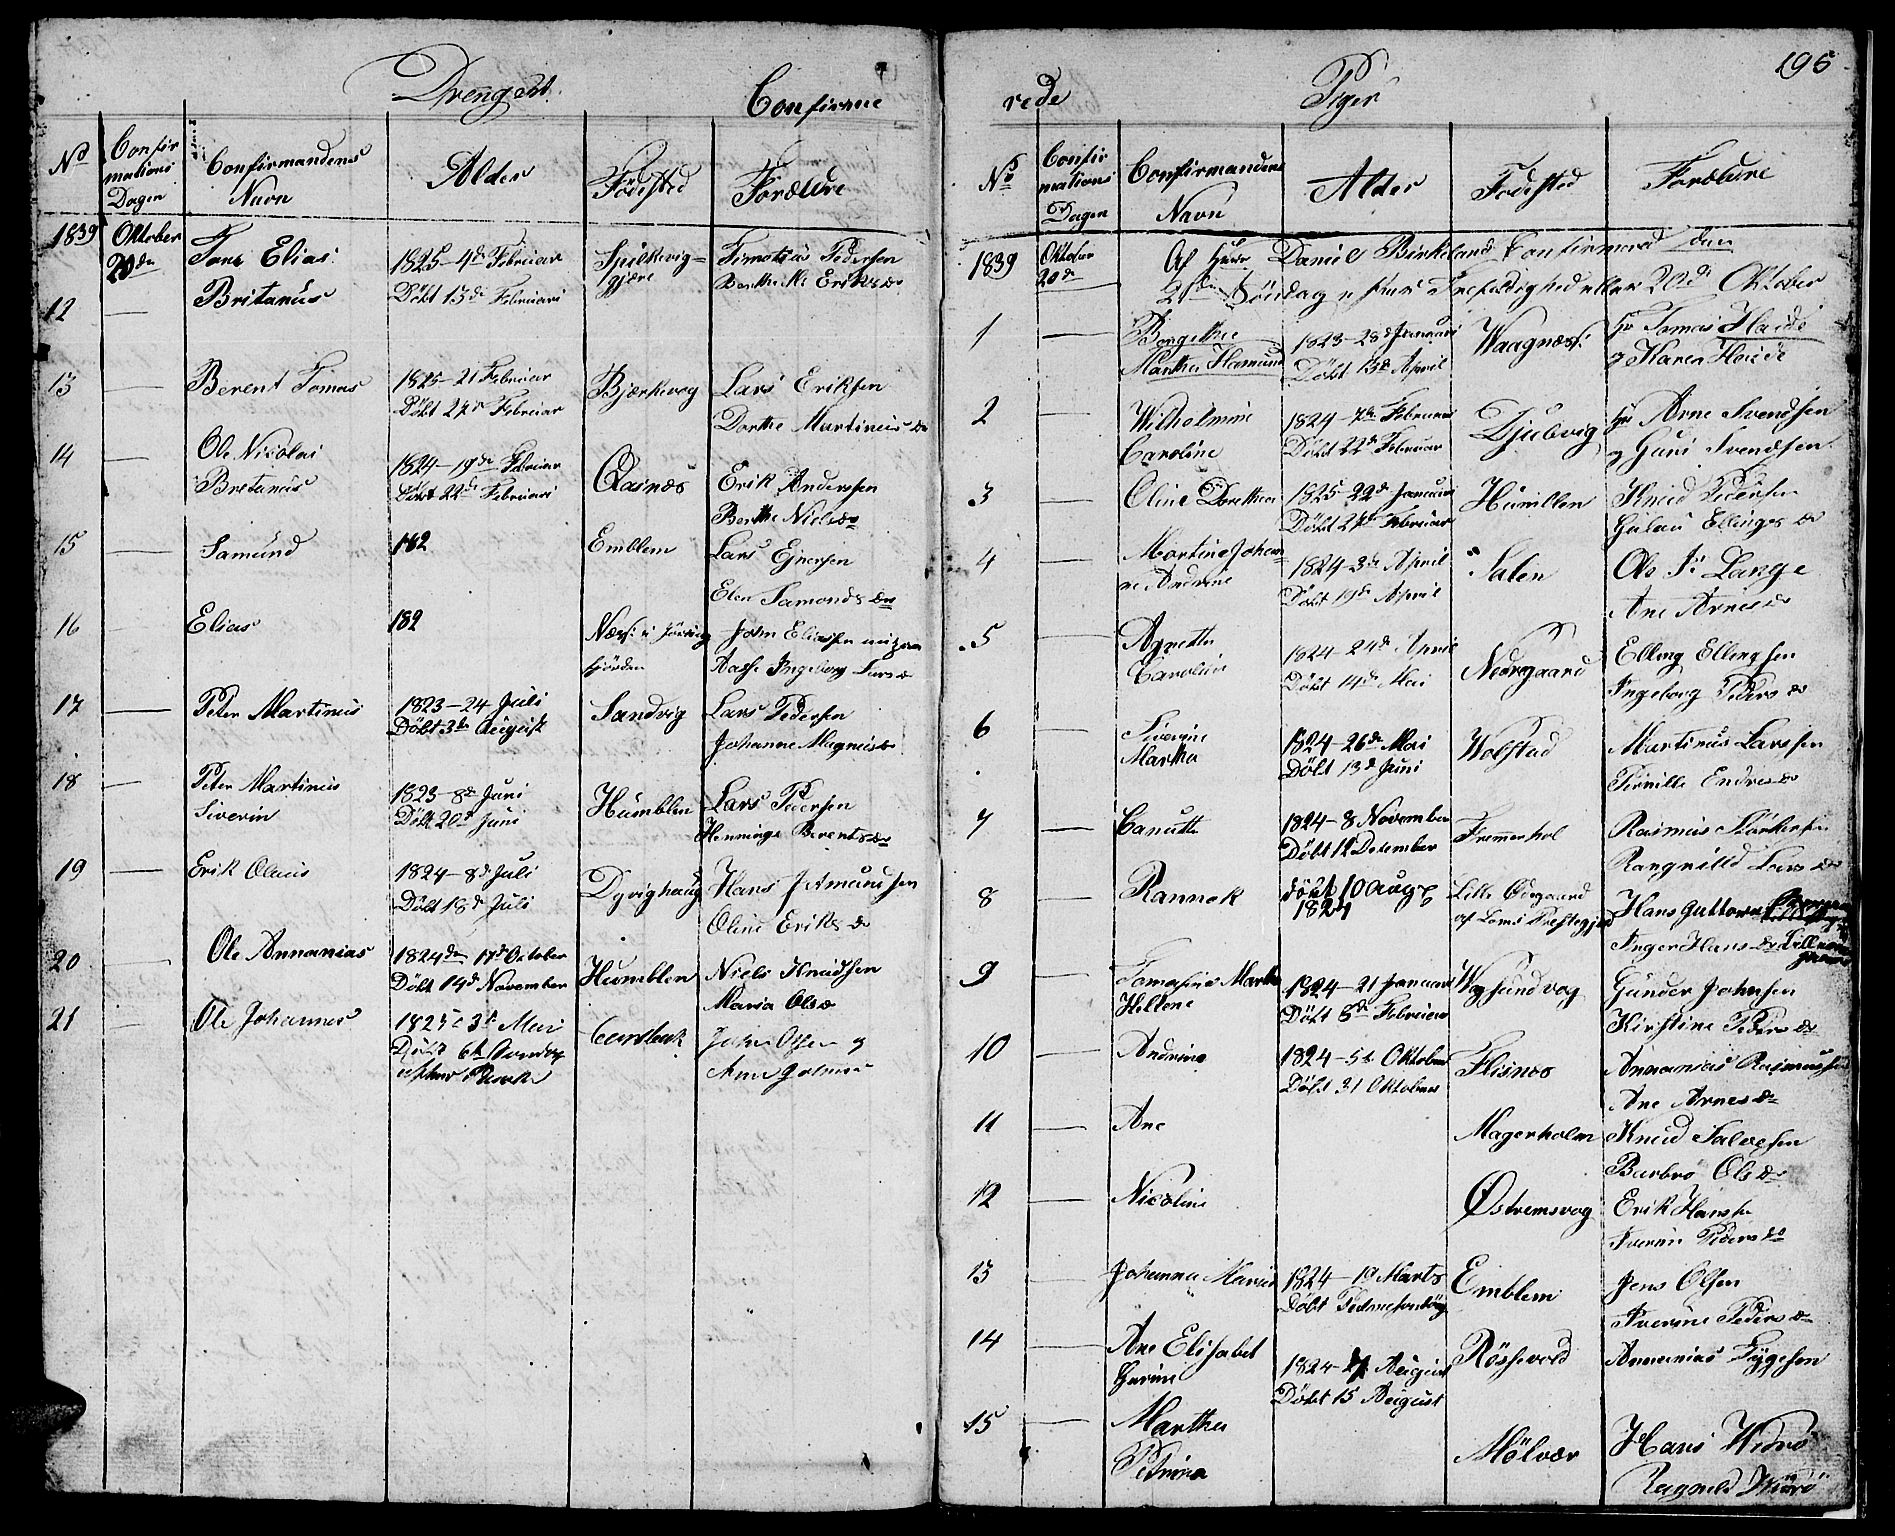 Drenge
Confirme
No
Confir
mations
Dagen
Confirmandens
Navn
Alder
Födested
Forældre
1839
Oktober
20de
12
Elias
Britanus
1825 - 4de Februar
Döbt 13de Februari
Spilkevig=
gjære
Timotius Pedersen
Eriksdr
13
Berent Tomas
1825 - 21 Februar
Döbt 27de Februar
Bjørkevog
Lars Eriksen
Dorthe Martinusdr
14
Ole Nicolai
Bretanus
1824 - 19de Februar
Döbt 22de Februari
Qvasnæs
Erik Anderssen
Berthe Nielsdr
15
Samund
182
Emblem
Lars Ejnersen
Elen Samondsdr
16
Elias
182
John Eliassen
Aasse Ingeborg Larsdr
17
Peter Martinus
1823 - 24 Juli
Döbt 3de August
Sandvig
Lars Pedersen
Johanne Magnusdr
18
Peter Martinus
Siverin
1823 - 8de Juni
Döbt 20de Juni
Humblen
Lars Pedersen
Henninge Berentsdr
19
Erik Olaus
1824 - 8de Juli
Döbt 18de Juli
Dyrighaug
Hans J Amundsen
Oline Eriksdr
20
Ole Annanias
1824de 17de October
Döbt 14de November
Humblen
Niels Knudsen
Maria Olsdr
21
Ole Johannes
1825 3de Mai
Döbt 6te Søndag
efter Paaske
John Olsen og
Ane
195
rede
Piger
No
Confir
mations
Dagen
Confirmandens
Navn
Alder
Fødested
Forældre
1839
Oktober
20de
Af Herr Daniel Birkeland Confirmered den
21de Söndag efter Trefoldighed eller 20de Oktober
1
Bergethe
Martha Hamund
1823 - 28de Januari
Döbt 13de April
Waagnæs
Hr Tomas Haide
og Karen Haide
2
Wilhelmine
Caroline
1824 - 7de Februar
Döbt 22de Februar
Djubvig
Hr Arne Svendsen
og Guri Svendsen
3
Oline Dorethea
1825 - 22de Januari
Döbt 27de Februar
Humblen
Knud Pedersen
Ellingsdr
4
Martine Johan=
ne Andrine
1824 - 3de April
Döbt 19de April
Salen
Ole J: Lange
Ane Arnesdr
5
Agnethe
Caroline
1824 - 24de April
Döbt 14de Mai
Nedregaard
Elling Ellingsen
Ingeborg Pedersdr
6
Siverine
Martha
1824 - 26de Mai
Döbt 13de Juni
Wolstad
Martinus Larssen
Pernille Endresdr
7
Canutte
1824 - 8 November
Döbt 12 Desember
Fremmerhol
Rasmus
Rangnild Larsdr
8
Rannek
Döbt 10 Aug
1824
Lille Ødegaard
af Loms Præstegjeld
Hans Guttorm
Inger Hansdr
9
Tomasine Martha
Hellene
1824 - 21 Januari
Döbt 8de Februar
Wegsundvog
Gunder Johnsen
Kirstine Pedersdr
10
Andrine
1824 - 5te Oktober
Döbt 31 Oktober
Flisnes
Annanias Rasmussen
Ane Arnesdr
11
Ane
Magerholm
Knud Salvesen
Barbro Olsdr
12
Nicoline
Østremsvog
Erik Hansen
Iverine Pedersdr
13
Johanne Marie
1824 - 19 Marts
Döbt
Emblem
Jens Olsen
Iverine Pedersdr
14
Ane Elisabet
Gurine
1824 - 4 August
Döbt 15 August
Rössevold
Annanias Tygesen
15
Martha
Petrina
Mölvær
Hans Widrö
Ragnild Widrö